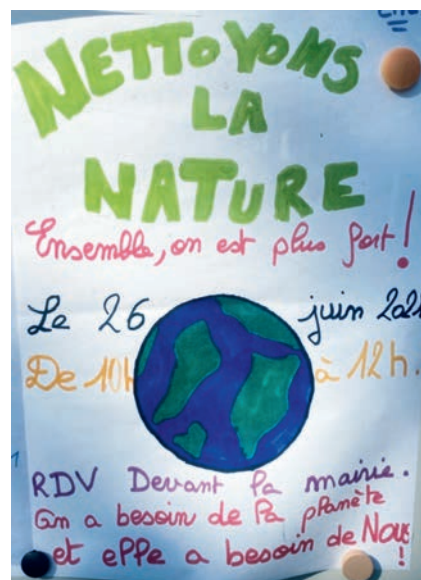 NETTOYONS
LA
NATURE
Ensemble, on est plus fort !
Le 26 juin 2021
De 10h à 12h.
RDV Devant la mairie.
On a besoin de la planète
et elle a besoin de Nous !